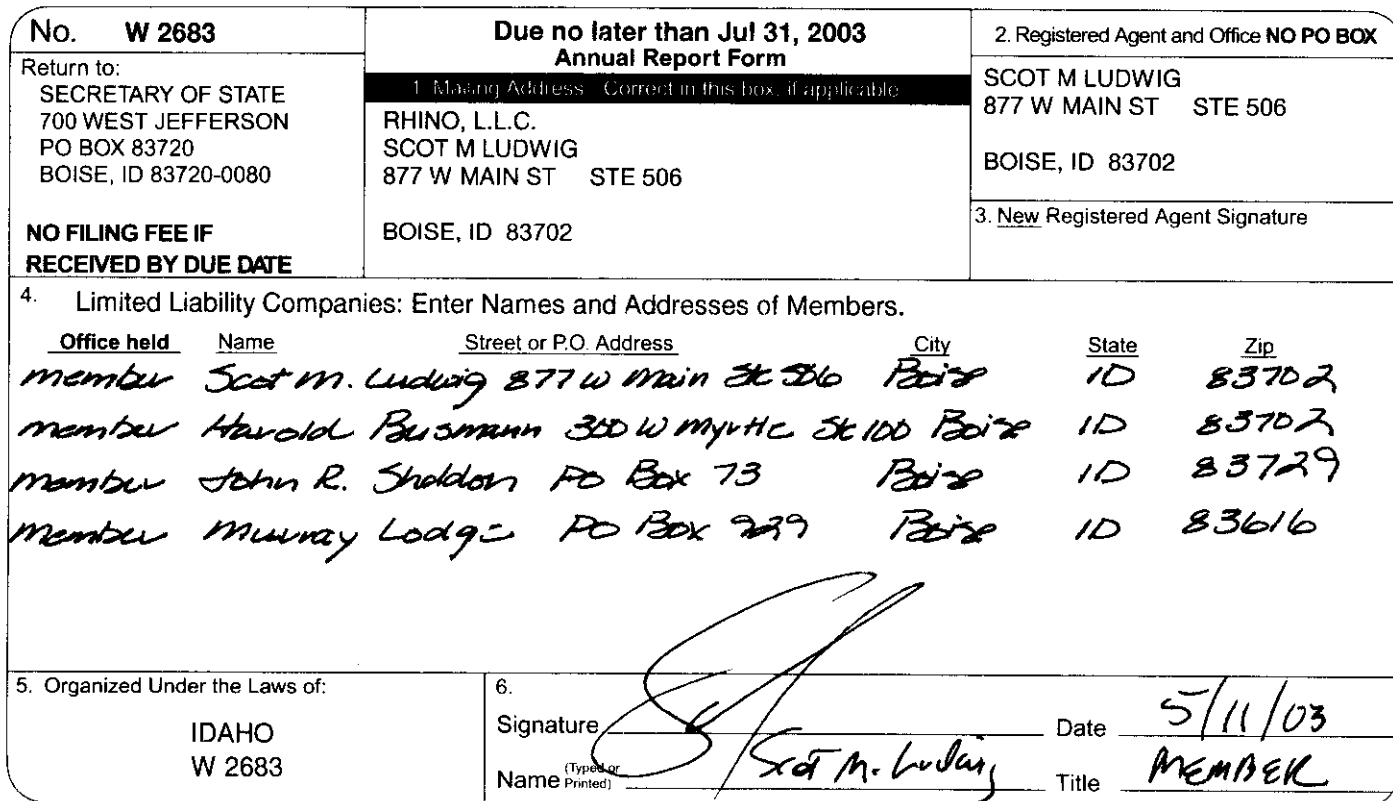 No. W 2683
Return to:
SECRETARY OF STATE
700 WEST JEFFERSON
PO BOX 83720
BOISE, ID 83720-0080
NO FILING FEE IF
RECEIVED BY DUE DATE
Due no later than Jul 31, 2003
Annual Report Form
1. Mailing Address Correct in this box, if applicable
RHINO, L.L.C.
SCOT M LUDWIG
877 W MAIN ST STE 506
BOISE, ID 83702
2. Registered Agent and Office NO PO BOX
SCOT M LUDWIG
877 W MAIN ST STE 506
BOISE, ID 83702
3. New Registered Agent Signature
4. Limited Liability Companies: Enter Names and Addresses of Members.
Office held Name Street or P.O. Address City State Zip
member Scot M. Ludwig 877 W Main Ste 506 Boise ID 83702
member Harold Busmann 300 W Myrtle Ste 100 Boise ID 83702
member John R. Sheldon PO Box 73 Boise ID 83729
member Murray Lodge PO Box Boise ID 83616
5. Organized Under the Laws of:
IDAHO
W 2683
6.
Signature Date 5/11/03
Name (Typed or Printed) Scot M. Ludwig Title MEMBER